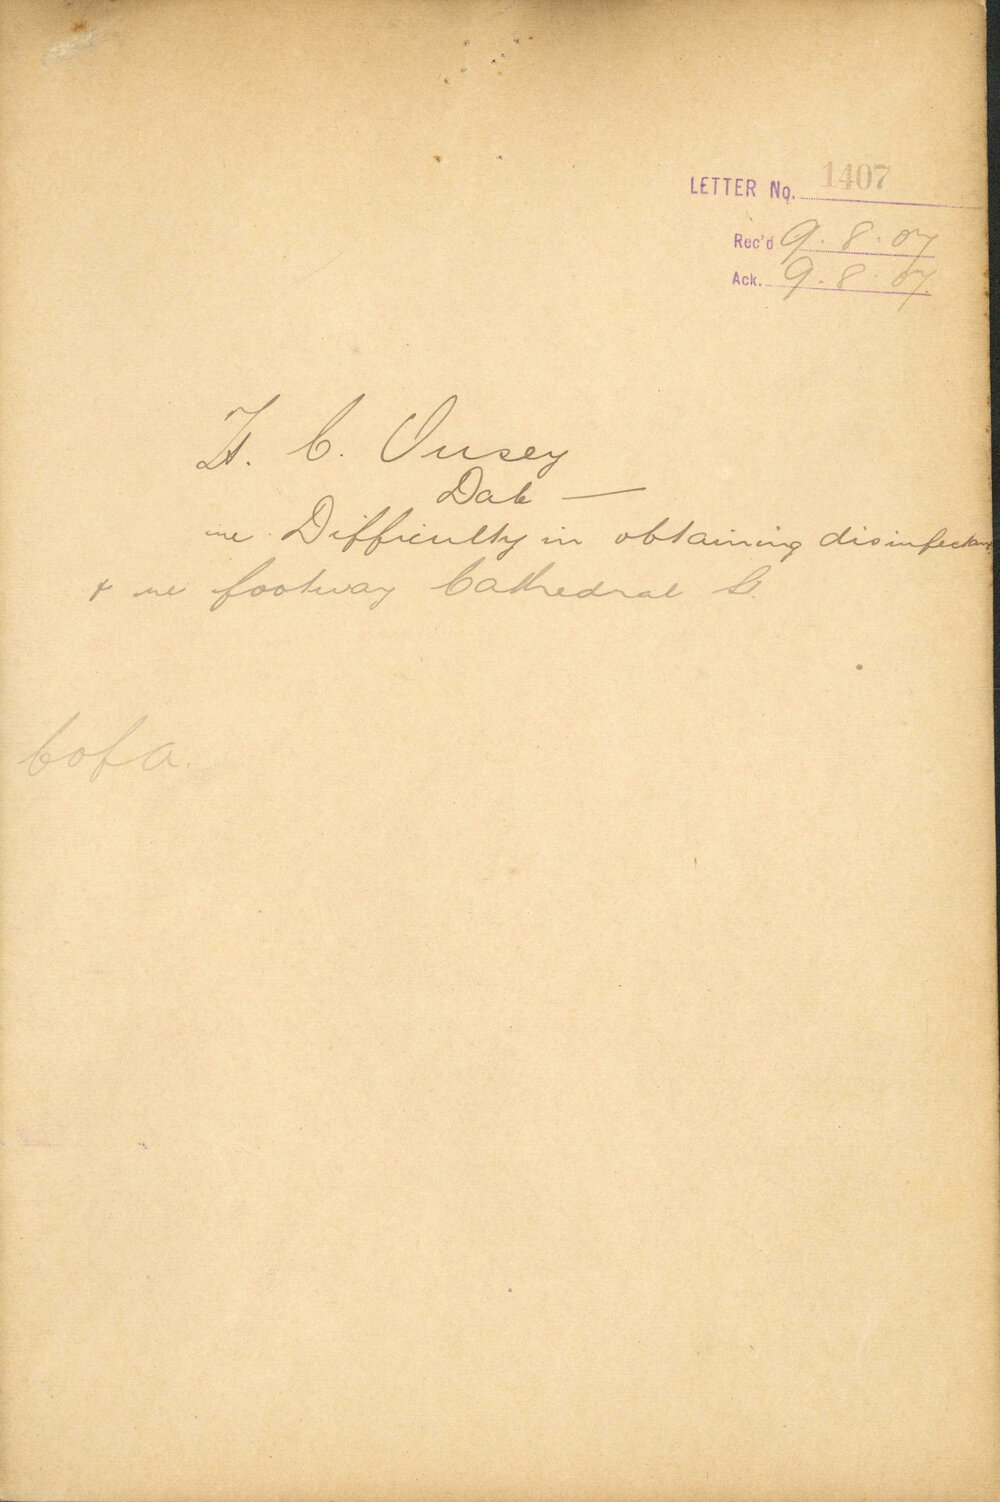 LETTER No. 1407
Rec'd 9.8.07
Ack. 9.8.07.
H. C. Ousey
Date —
re Difficulty in obtaining disinfectant
& re footway Cathedral St.
C of A.